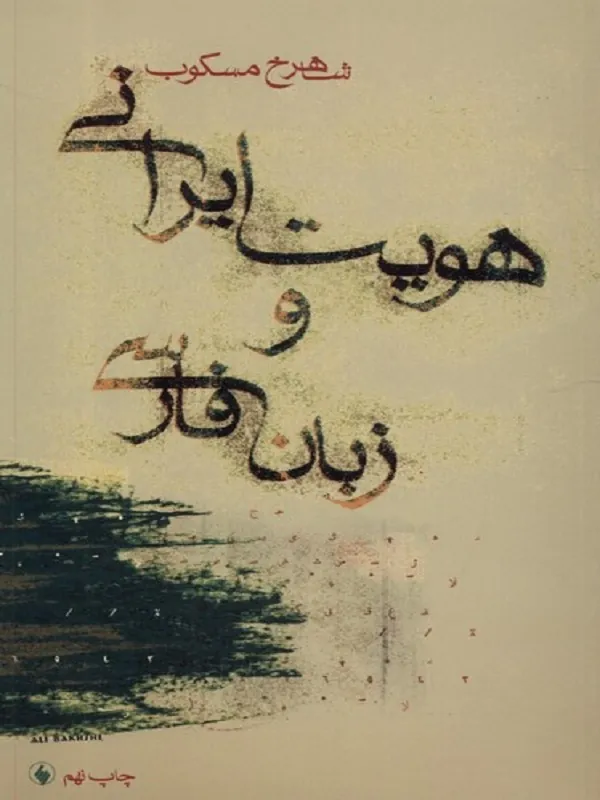 شاهرخ مسکوب
هویت ایرانی
و
زبان فارسی
ALI BAKHSHI
چاپ نهم